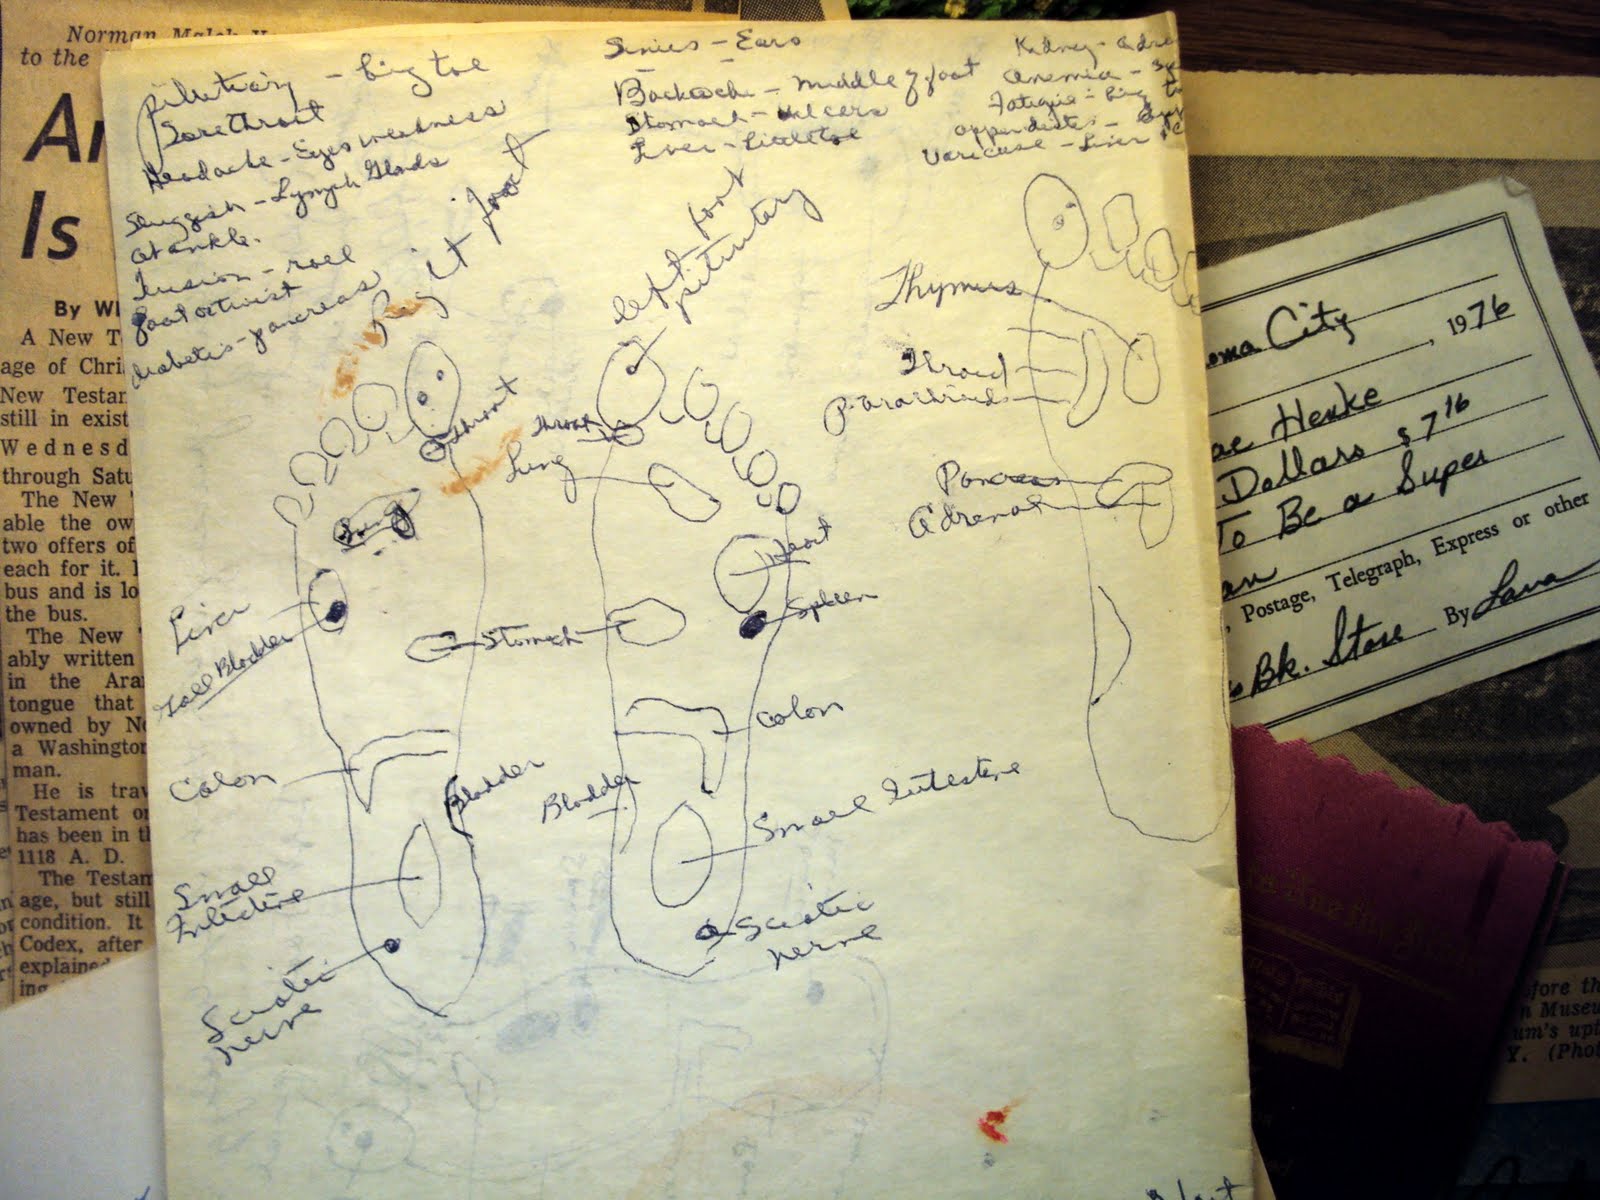 Norman Malek
to the
An
Is
By W
A New T
age of Chri
New Testam
still in exist
Wednesd
through Satu
The New
able the ow
two offers of
each for it.
bus and is lo
the bus.
The New
ably written
in the Ara
tongue that
owned by No
a Washington
man.
He is trav
Testament or
has been in th
1118 A. D.
The Testam
age, but still
condition. It
Codex, after
explained
ing
pitutiary - big toe
Sore throat
Headache - Eyes weakness
Sluggish - Lymph Glands
at ankle.
foot & twist
diabetis - pancreas
Sinies - Ears
Backache - middle of foot
Stomach - Ulcers
Liver - Little toe
Kidney - adre
anemia -
Fatigue - big
Varicose - Liver
Reg it foot
left foot
pitutary
Throat
Throat
Lung
Lung
Heart
Spleen
Stomach
Liver
Gall Bladder
Colon
Colon
Bladder
Bladder
Small
Intestine
Small Intestine
Sciatic
nerve
Sciatic
nerve
Thymus
Throid
Parathroid
Pancreas
Adrenal
oma City
, 1976
ae Henke
Dollars $ 7 16
To Be a Super
an
, Postage, Telegraph, Express or other
Bk. Store By Lana
efore th
n Museu
um's upt
Y. (Phot